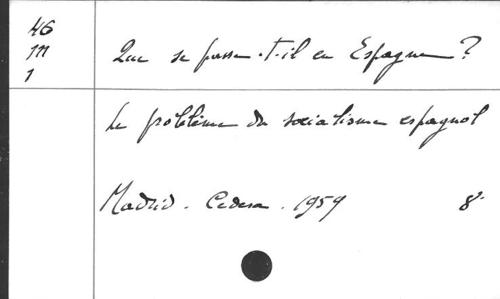 46
111
1
Que se passe-t-il en Espagne ?
Le problème du socialisme espagnol
Madrid. Cedesa. 1959 8°